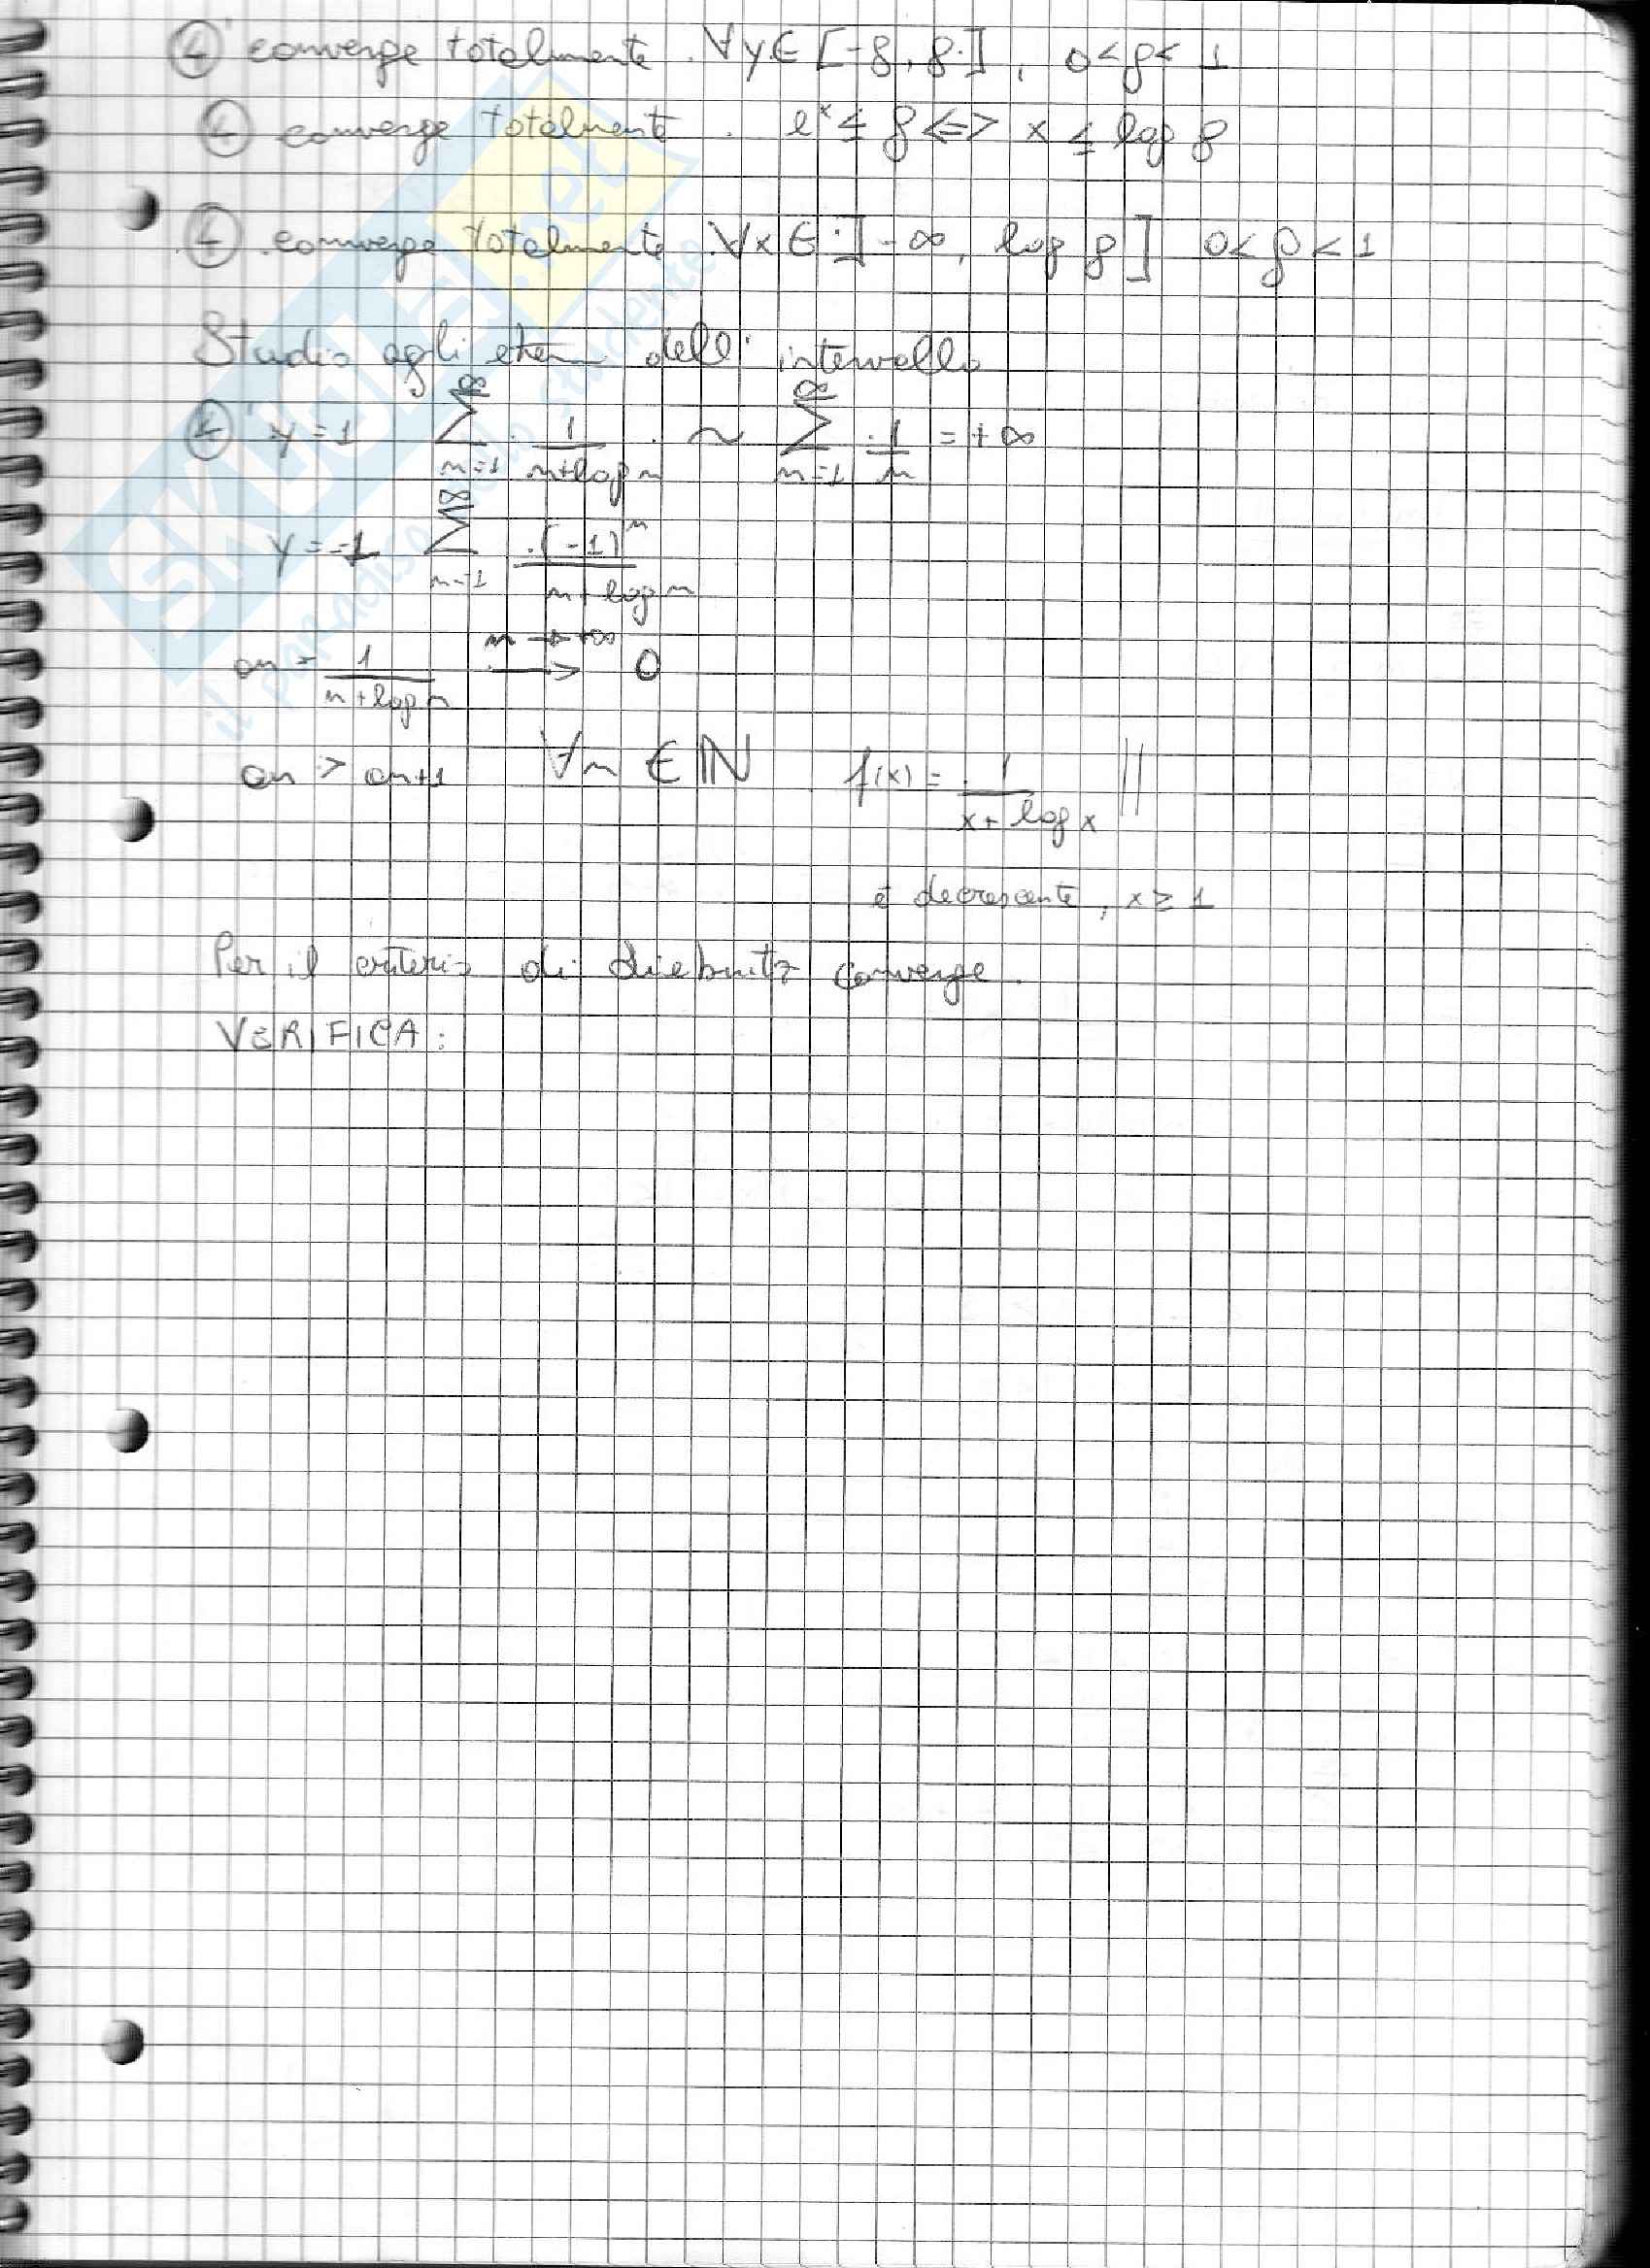 ④' converge totalmente ∀y∈[-ρ, ρ], 0<ρ<1
④ converge totalmente e^x ≤ ρ <=> x ≤ log ρ
④ converge totalmente ∀x∈]-∞, log ρ] 0<ρ<1
Studio agli dell' intervallo
④' y=1 ∑_{n=1}^{∞} 1/(n+log n) ~ ∑_{n=1}^{∞} 1/n = +∞
y=-1 ∑_{n=1}^{∞} (-1)^n/(n+log n)
an = 1/(n+log n) n→+∞ → 0
an > an+1 ∀n ∈ ℕ f(x) = 1/(x+log x)
è decrescente, x≥1
Per il criterio di Liebnitz converge.
VERIFICA:
SKUOLA.net
il paradiso dello studente